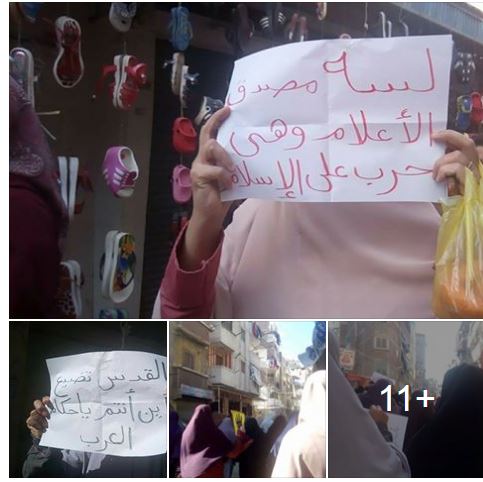 لسه مصدق
الأعلام وهى
حرب على الإسلام
القدس تضيع
أين أنتم يا حكام
العرب
11+